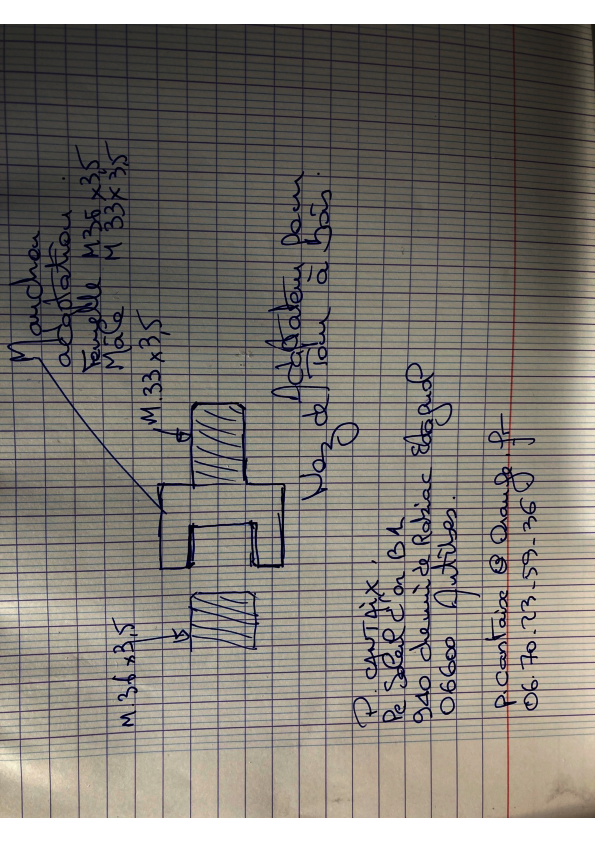 Manchon
adaptation.
Femelle M36x3,5
Mâle M 33x3,5
M.33x3,5
M.36x3,5
Adaptateur pour
Nez de Tour à bois.
P. CANTAIX.
Rce Soleil d'or B1
940 chemin de Rabiac Estagnol
06600 Antibes.
p.cantaix@orange.fr
06.70.23.59.36